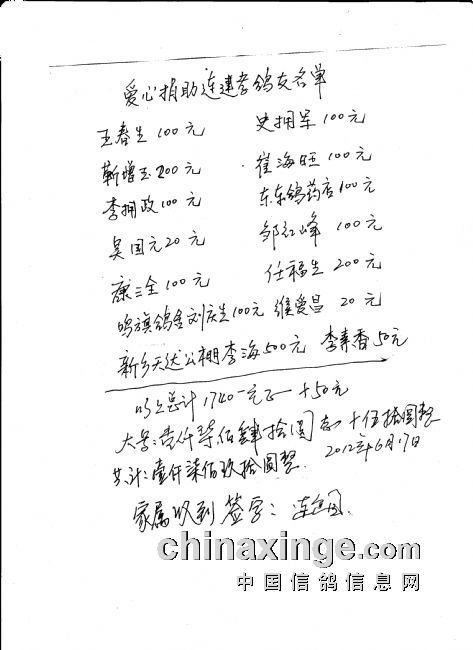 爱心捐助连建孝鸽友名单
王春生100元 史拥军100元
靳增玉200元 崔海旺100元
李拥政100元 东东鸽药店100元
吴国元20元 邹红峰 100元
康三全100元 任福生 200元
鸣旗鸽舍刘庆生100元 维爱昌 20元
新乡天达公棚李海500元 李素香50元
以上总计1740元正 +50元
大写:壹仟柒佰肆拾圆 +伍拾圆整
共计:壹仟柒佰玖拾圆整. 2012年6月17日
家属收到 签字:
chinaxinge.com
中国信鸽信息网